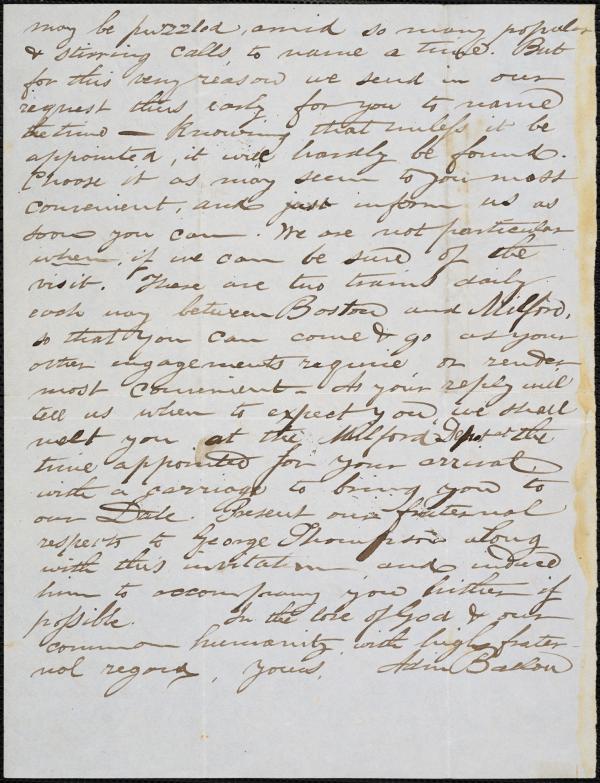 may be puzzled, amid so many popular
& stirring calls to name a time. But
for this very reason we send in our
request thus early for you to name
the time — knowing that unless it be
appointed, it will hardly be found.
Choose it as may seem to you most
convenient, and just inform us as
soon you can. We are not particular
when, if we can be sure of the
visit. There are two trains daily
each way between Boston and Milford,
so that you can come & go as your
other engagements require or render
most convenient — As your reply will
tell us when to expect you, we shall
meet you at the Milford Depot at the
time appointed for your arrival
with a carriage to bring you to
our Dale. Present our fraternal
respects to George Thompson along
with this invitation, and induce
him to accompany you hither if
possible. In the love of God & our
common humanity, with high frater-
nal regard, yours, Adin Ballou